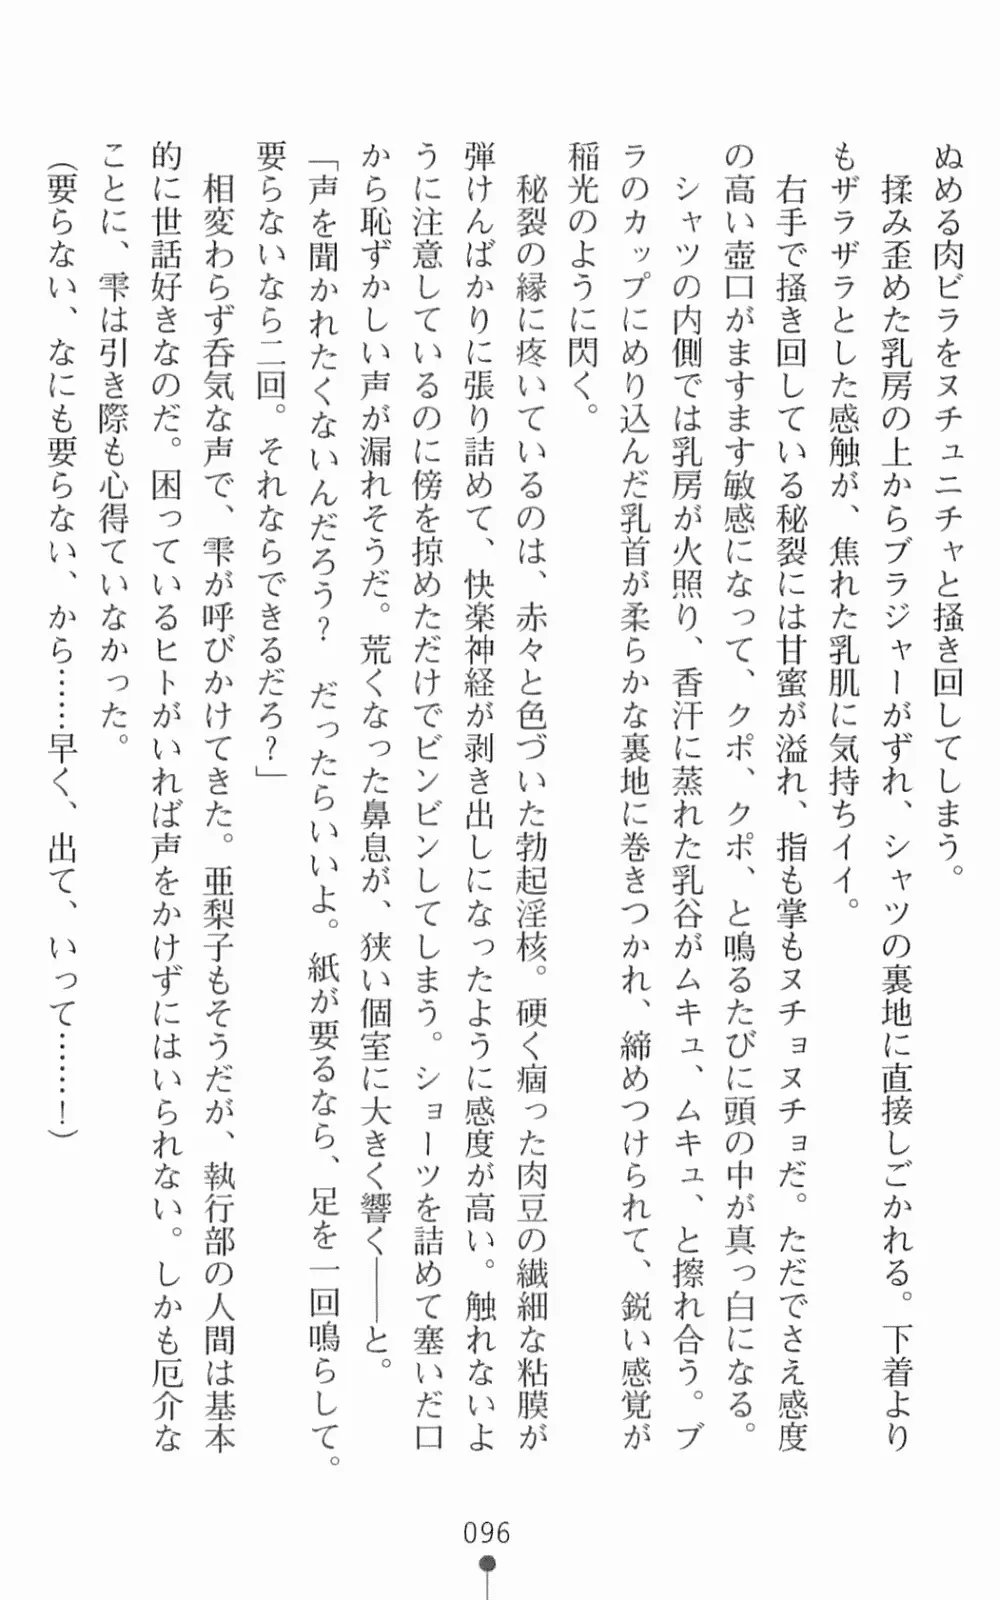 ぬめる肉ビラをヌチュニチャと掻き回してしまう。
揉み歪めた乳房の上からブラジャーがずれ、シャツの裏地に直接しごかれる。下着より
もザラザラとした感触が、焦れた乳肌に気持ちイイ。
右手で掻き回している秘裂には甘蜜が溢れ、指も掌もヌチョヌチョだ。ただでさえ感度
の高い壺口がますます敏感になって、クポ、クポ、と鳴るたびに頭の中が真っ白になる。
シャツの内側では乳房が火照り、香汗に蒸れた乳谷がムキュ、ムキュ、と擦れ合う。ブ
ラのカップにめり込んだ乳首が柔らかな裏地に巻きつかれ、締めつけられて、鋭い感覚が
稲光のように閃く。
秘裂の縁に疼いているのは、赤々と色づいた勃起淫核。硬く痼った肉豆の繊細な粘膜が
弾けんばかりに張り詰めて、快楽神経が剥き出しになったように感度が高い。触れないよ
うに注意しているのに傍を掠めただけでビンビンしてしまう。ショーツを詰めて塞いだ口
から恥ずかしい声が漏れそうだ。荒くなった鼻息が、狭い個室に大きく響く――と。
「声を聞かれたくないんだろう？　だったらいいよ。紙が要るなら、足を一回鳴らして。
要らないなら二回。それならできるだろ？」
相変わらず呑気な声で、雫が呼びかけてきた。亜梨子もそうだが、執行部の人間は基本
的に世話好きなのだ。困っているヒトがいれば声をかけずにはいられない。しかも厄介な
ことに、雫は引き際も心得ていなかった。
（要らない、なにも要らない、から……早く、出て、いって……！）
096